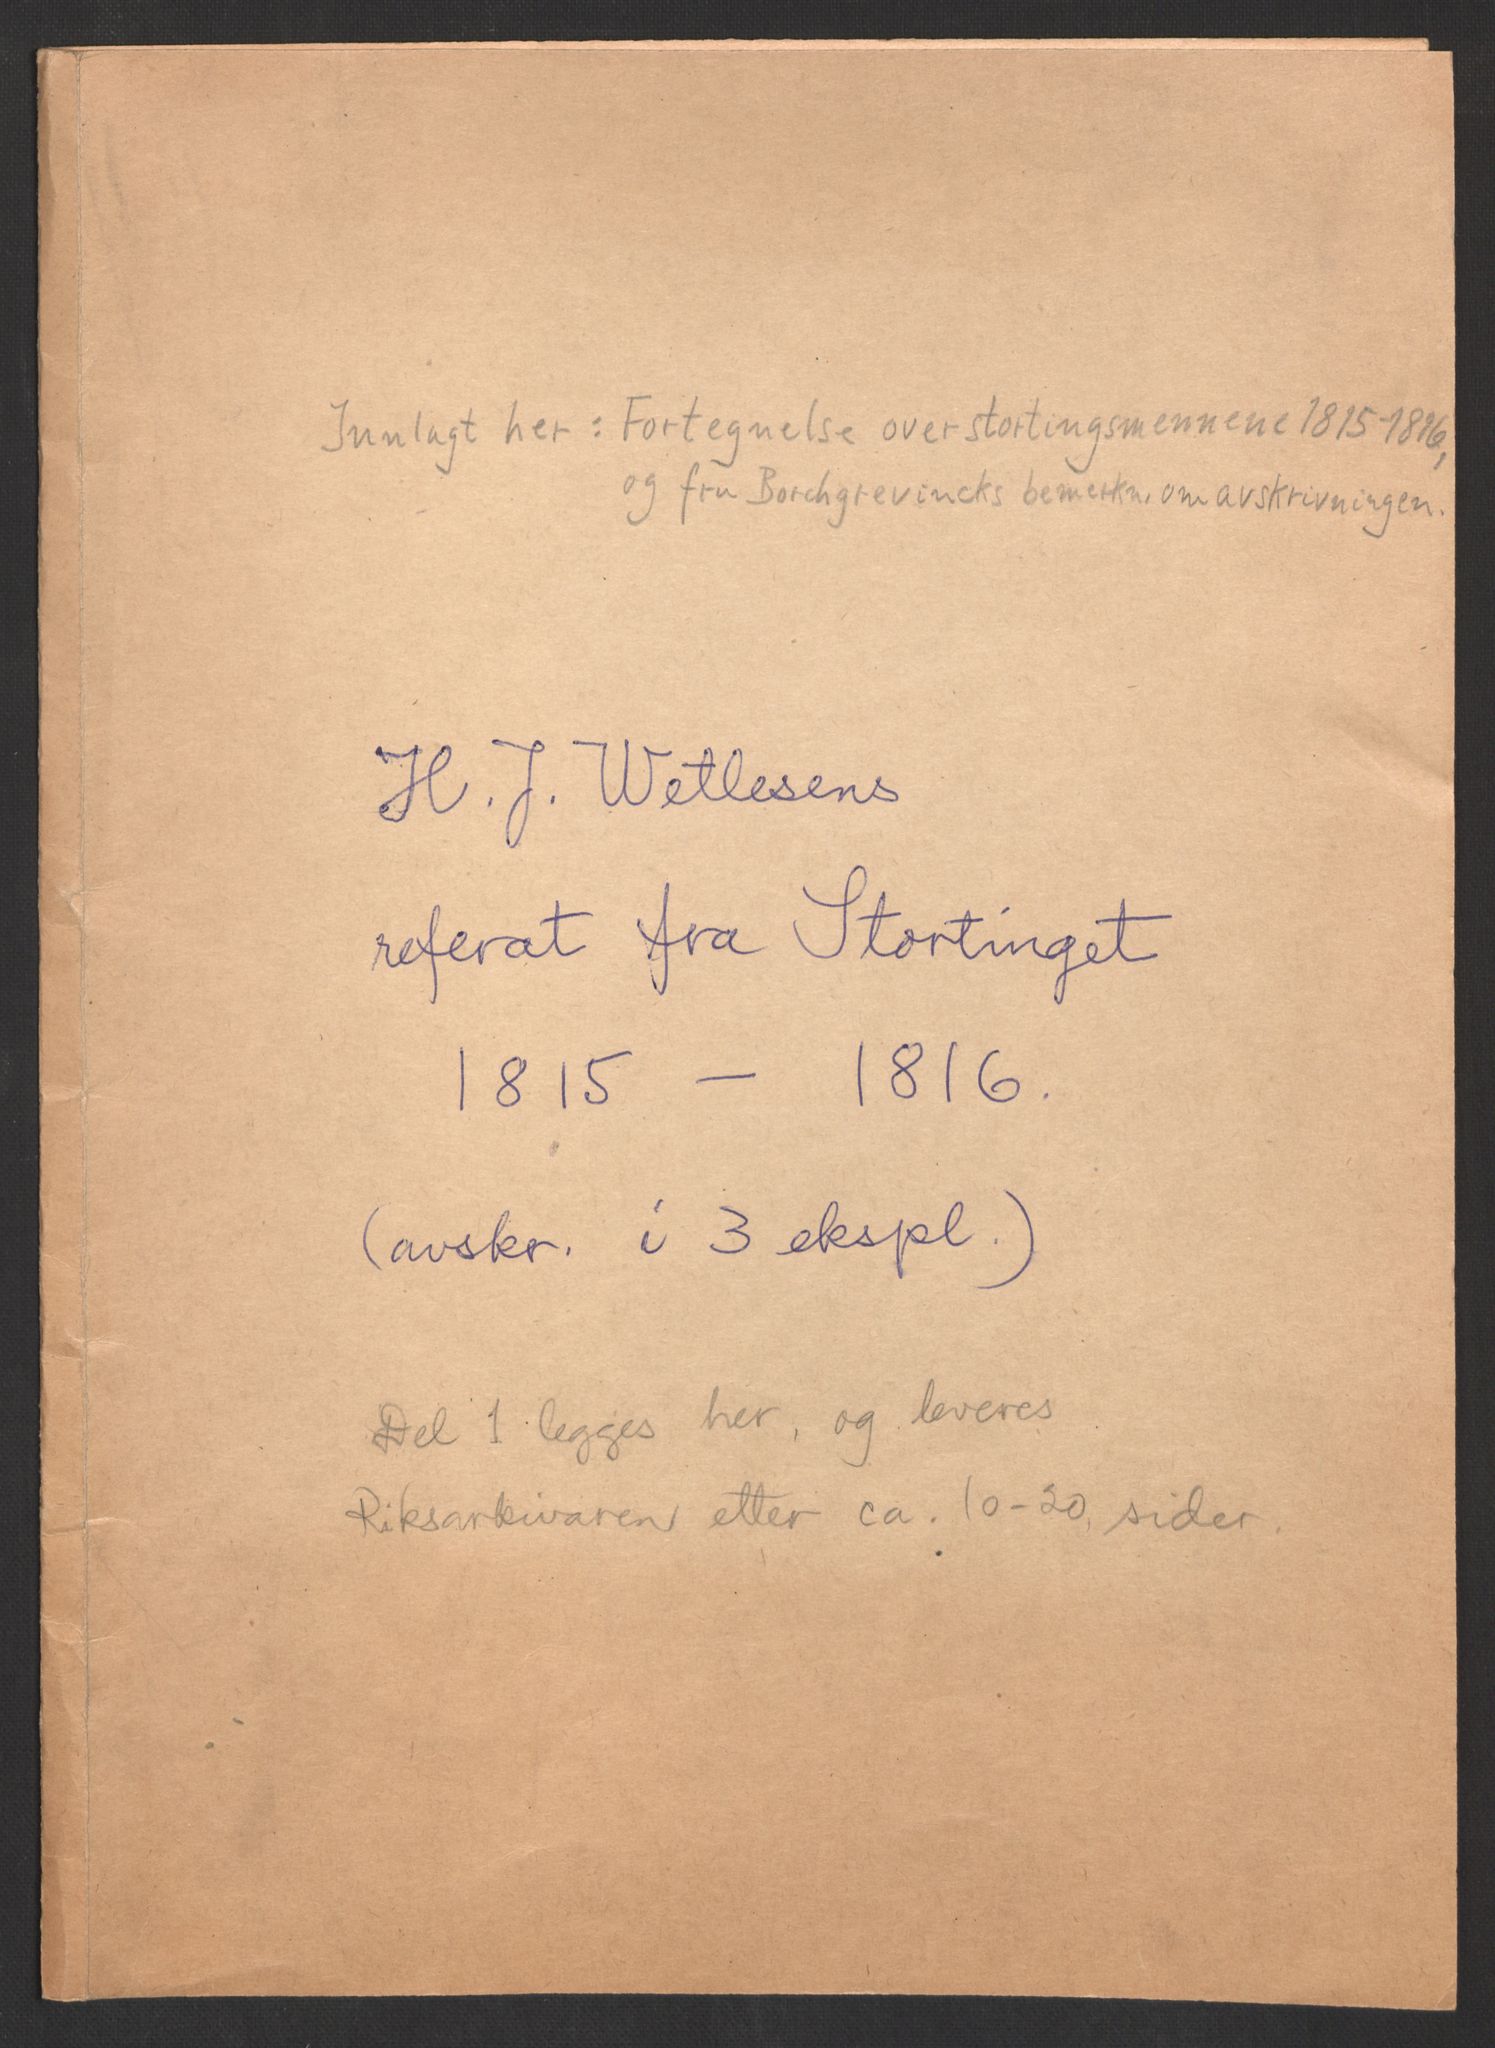 Innlagt her: Fortegnelse over stortingsmennene 1815-1816,
og fru Borchgrevincks bemerkn. om avskrivningen.
H. J. Wetlesens
referat fra Stortinget
1815 – 1816.
(avskr. i 3 ekspl.)
Del 1 legges her, og leveres
Riksarkivaren etter ca. 10-20 sider.